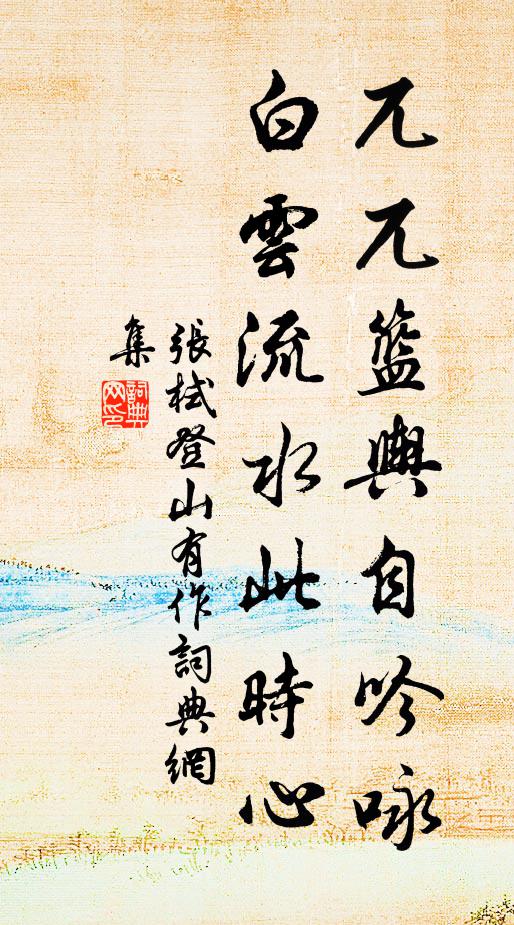 兀兀籃輿自吟咏
白雲流水此時心
張栻登山有作詞典網
集
詞典
网印